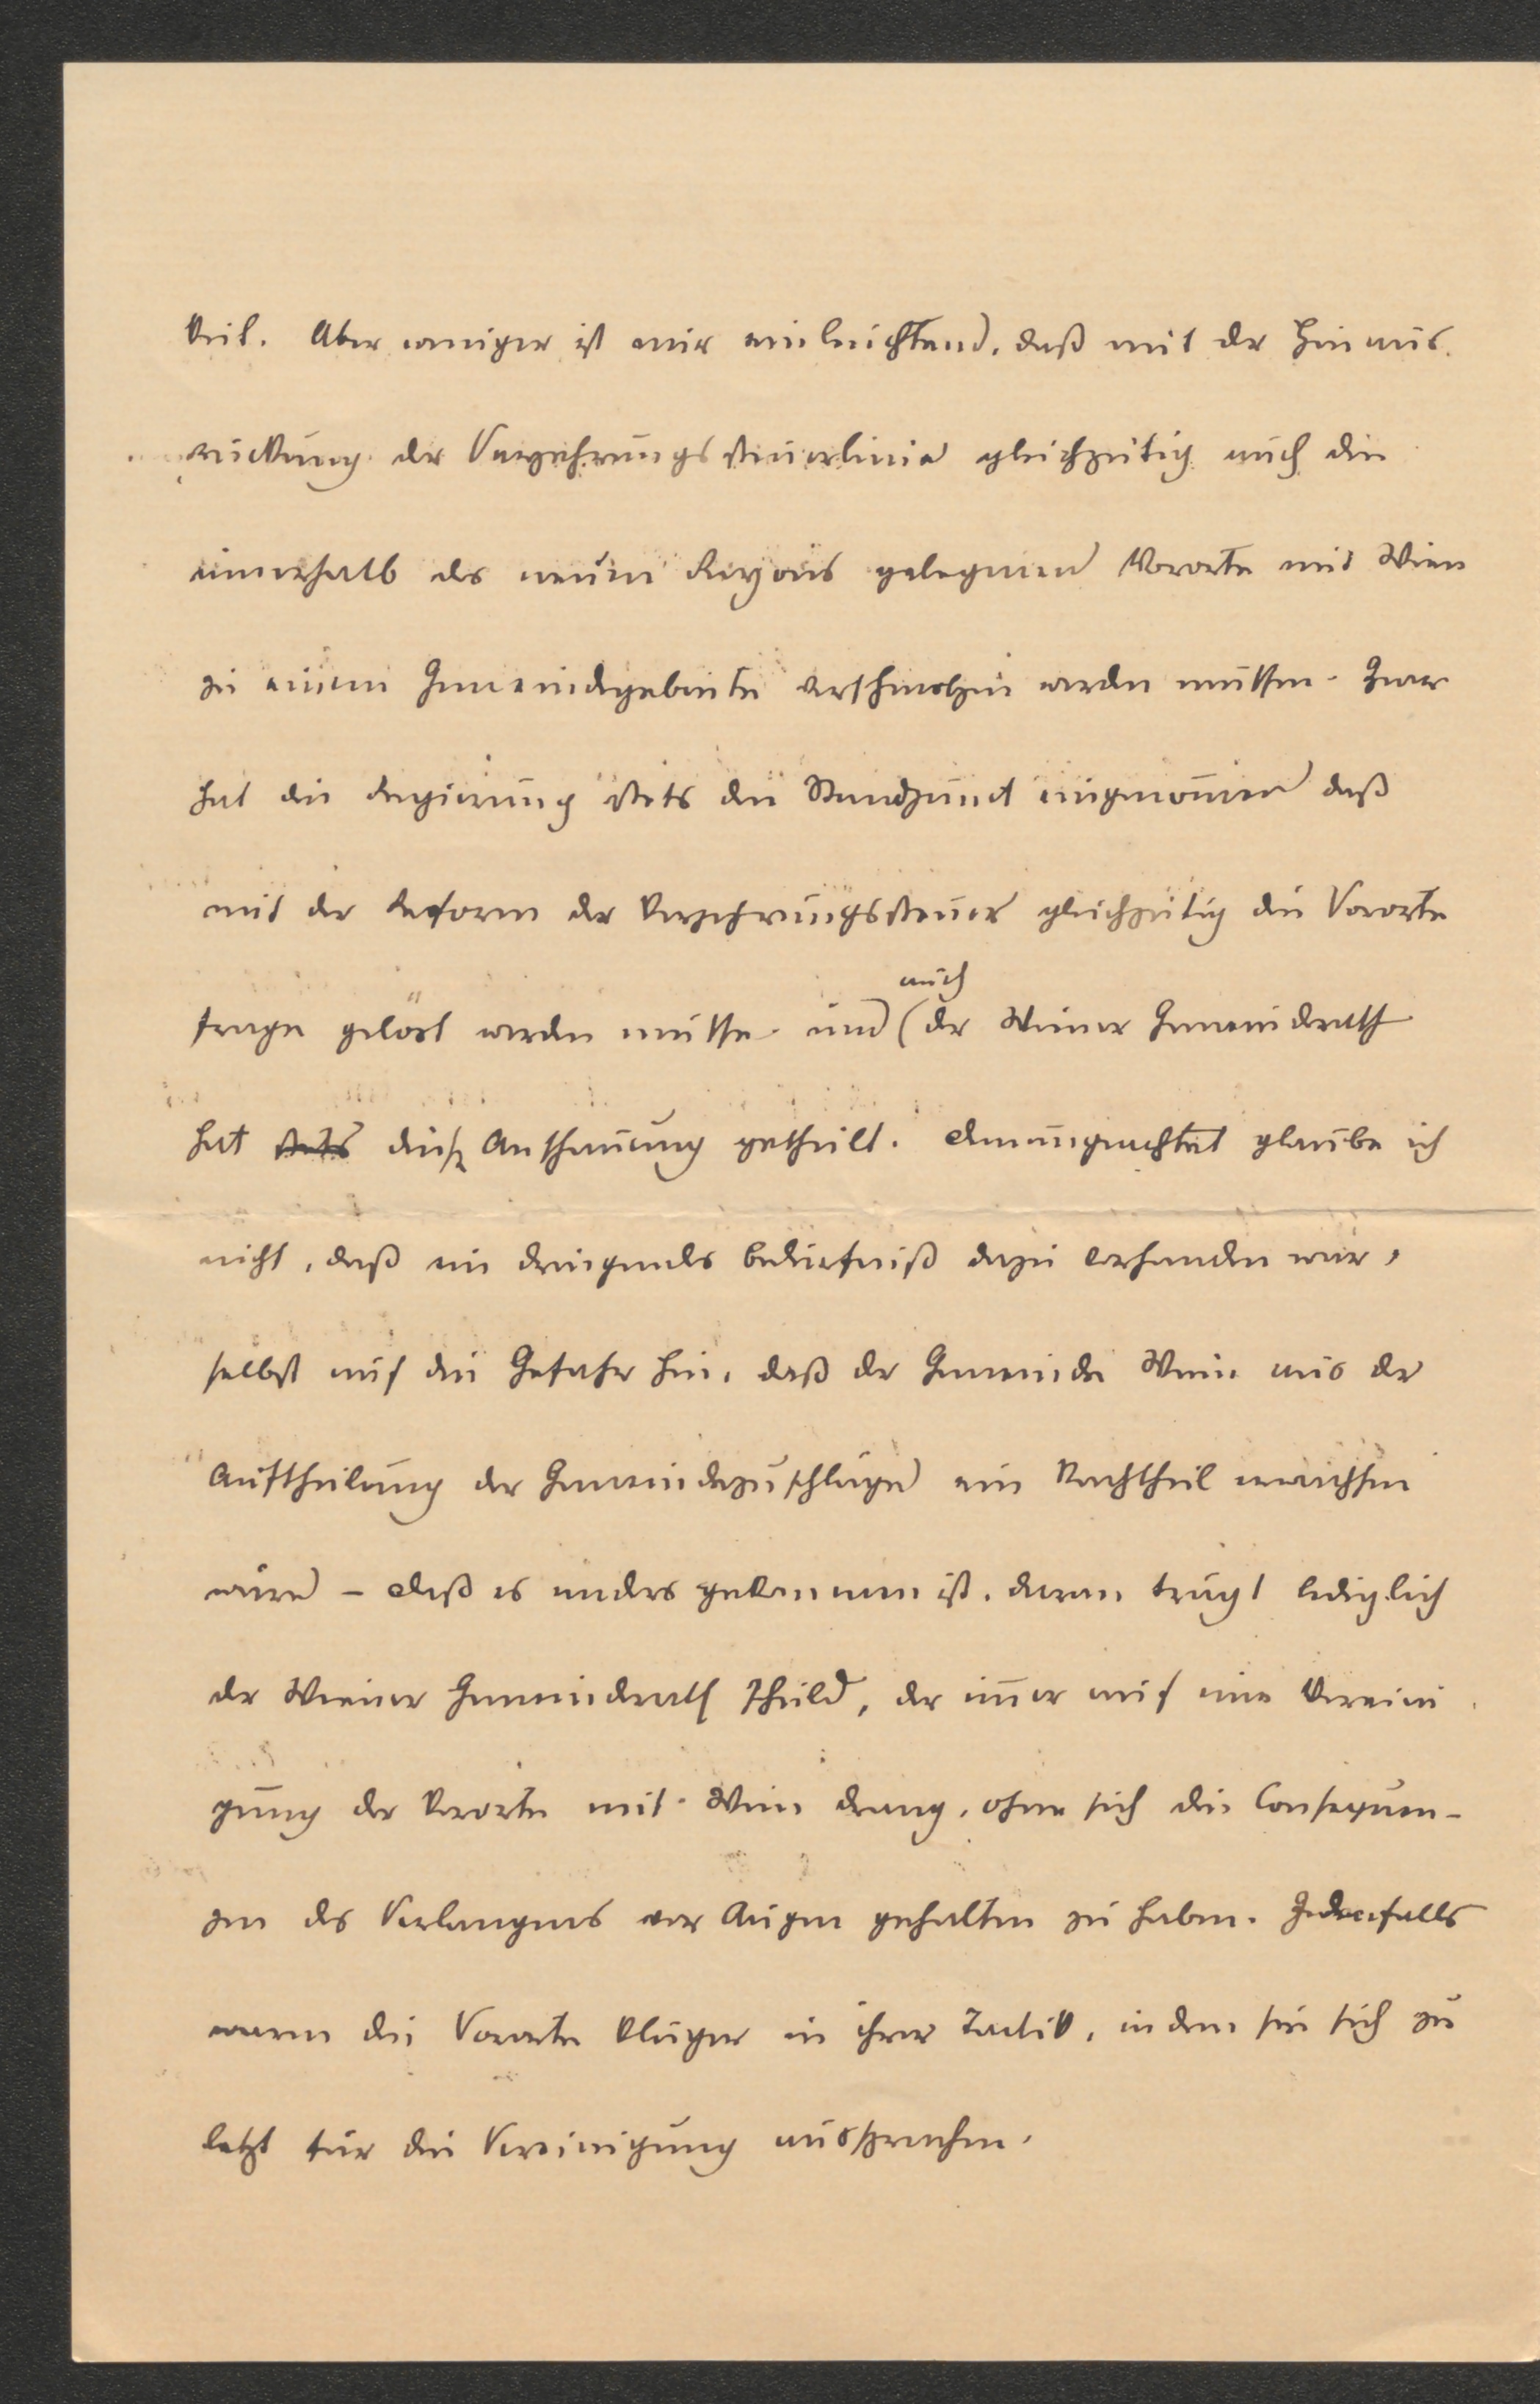 keit. Aber weniger ist mir einleuchtend, daß mit der Hinaus-
rückung der Verzehrungssteuerlinie gleichzeitig auch die
innerhalb des neuen Rayons gelegenen Vororte mit Wien
zu einem Gemeindegebiete verschmolzen werden müssen. Zwar
hat die Regierung stets den Standpunct eingenom̄en daß
mit der Reform der Verzehrungssteuer gleichzeitig die Vororte
auch
frage gelöst werden müsse und (der Wiener Gemeinderath
hat stets diese Anschauung getheilt. Demungeachtet glaube ich
nicht, daß ein dringendes Bedürfniß dazu vorhanden war,
selbst auf die Gefahr hin, daß der Gemeinde Wien aus der
Auftheilung der Gemeindezuschläge ein Nachtheil erwachsen
wäre – daß es anders gekommen ist, daran trägt lediglich
der Wiener Gemeinderath Schuld, der im̄er auf eine Vereini
gung der Vororte mit Wien drang, ohne sich die Consequen-
zen des Verlangens vor Augen gehalten zu haben. Jedenfalls
waren die Vororte klüger in ihrer Tactik, indem sie sich zu
letzt für die Vereinigung aussprachen.